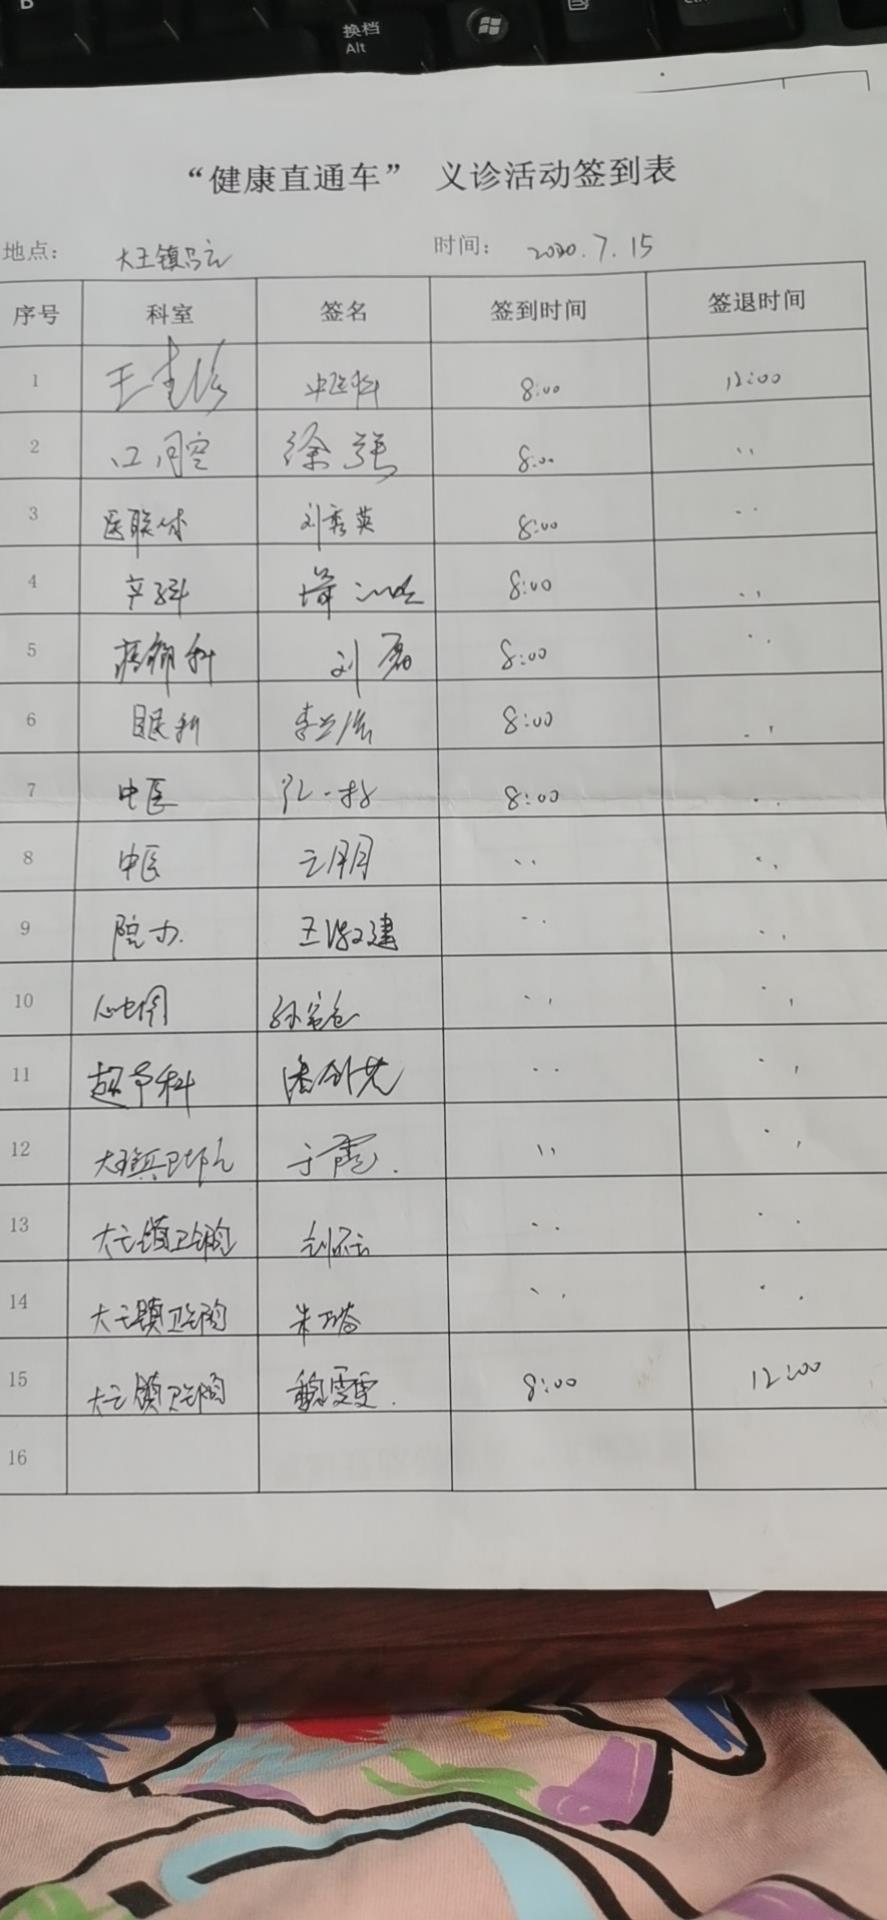 换档
Alt
“健康直通车” 义诊活动签到表
地点: 大王镇 时间: 2020.7.15
序号 科室 签名 签到时间 签退时间
1 中医科 8:00 12:00
2 口腔 徐强 8:00 ,,
3 医联体 刘秀英 8:00 ,,
4 产科 8:00 ,,
5 科 刘磊 8:00 ,,
6 眼科 8:00 ,,
7 中医 8:00 ,,
8 中医 ,, ,,
9 院办. 王 建 ,, ,,
10 心电图 孙 ,, ,,
11 超声科 潘 ,, ,,
12 于霞. ,, ,,
13 大王镇卫生院 ,, ,,
14 大王镇卫生院 朱 ,, ,,
15 大王镇卫生院 魏雯雯. 8:00 12:00
16